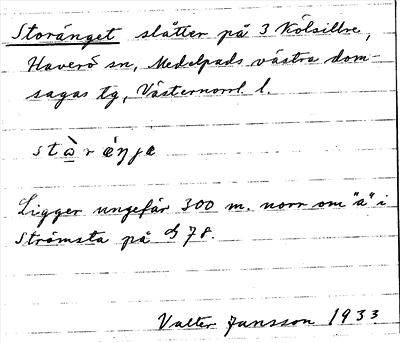 Storänget slåtter på 3 Kölsillre,
Haverö sn, Medelpads västra dom-
sagas tg, Västernorrl. l.
Ligger ungefär 300 m. norr om "a" i
Strömsta på 78.
Valter Jansson 1933